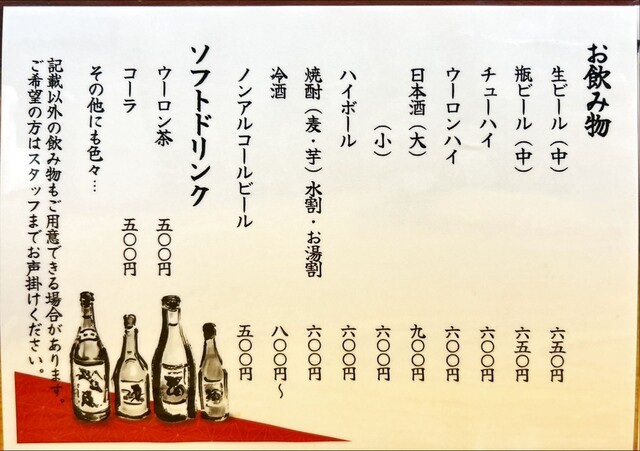 お飲み物
生ビール(中) 六五〇円
瓶ビール(中) 六五〇円
チューハイ 六〇〇円
ウーロンハイ 六〇〇円
日本酒(大) 九〇〇円
(小) 六〇〇円
ハイボール 六〇〇円
焼酎(麦・芋)水割・お湯割 六〇〇円
冷酒 八〇〇円〜
ノンアルコールビール 五〇〇円
ソフトドリンク
ウーロン茶 五〇〇円
コーラ 五〇〇円
その他にも色々…
記載以外の飲み物もご用意できる場合があります。
ご希望の方はスタッフまでお声掛けください。